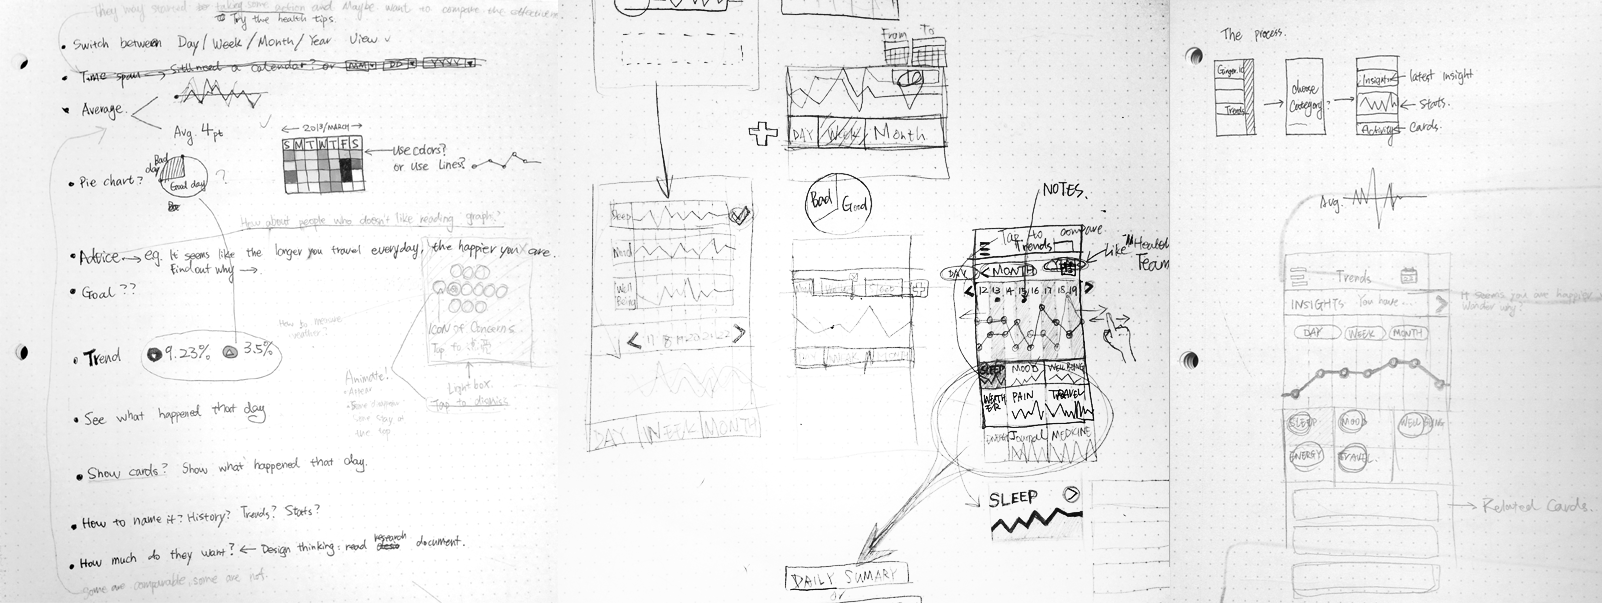 they may started to taking some action and Maybe want to compare the effectiveness
Try the health tips.
• Switch between Day/Week/Month/Year View
• Time span → Still need a calendar? or MM DD YYYY
• Average.
Avg. 4pt
← 2013/MARCH →
S M T W T F S
use colors?
or use Lines?
• Pie chart?
Bad day
Good day
?
How about people who doesn't like reading graph?
• Advice → eg. It seems like the longer you travel everyday, the happier you are.
Find out why →.
• Goal??
Icon of Concerns
Light box.
Tap to dismiss
Animate!
• Trend
9.23%
3.5%
• See what happened that day
• Show cards? Show what happened that day.
• How to name it? History? Trends? Stats?
• How much do they want? ← Design thinking: read research document.
Some are comparable, some are not.
Sleep
Mood
Well Being
DAY WEEK MONTH
From
To
DAY Week Month
Bad
Good
NOTES.
Tap to compare
Trends
Like "Health Team
DAY
< MONTH
12 13 14 15 16 17 18 19
SLEEP MOOD WELL BEING
WEATHER PAIN TRAVEL
ENERGY Journal MEDICINE
SLEEP
DAILY SUMARY
or
The process.
Ginger.io
Trends
choose Category?
Insight
latest insight
Stats.
Activity
Cards.
Avg.
Trends
INSIGHTS You have...
It seems you are happier
Wonder why?
DAY WEEK MONTH
SLEEP MOOD WELL BEING
ENERGY TRAVEL
Related Cards.